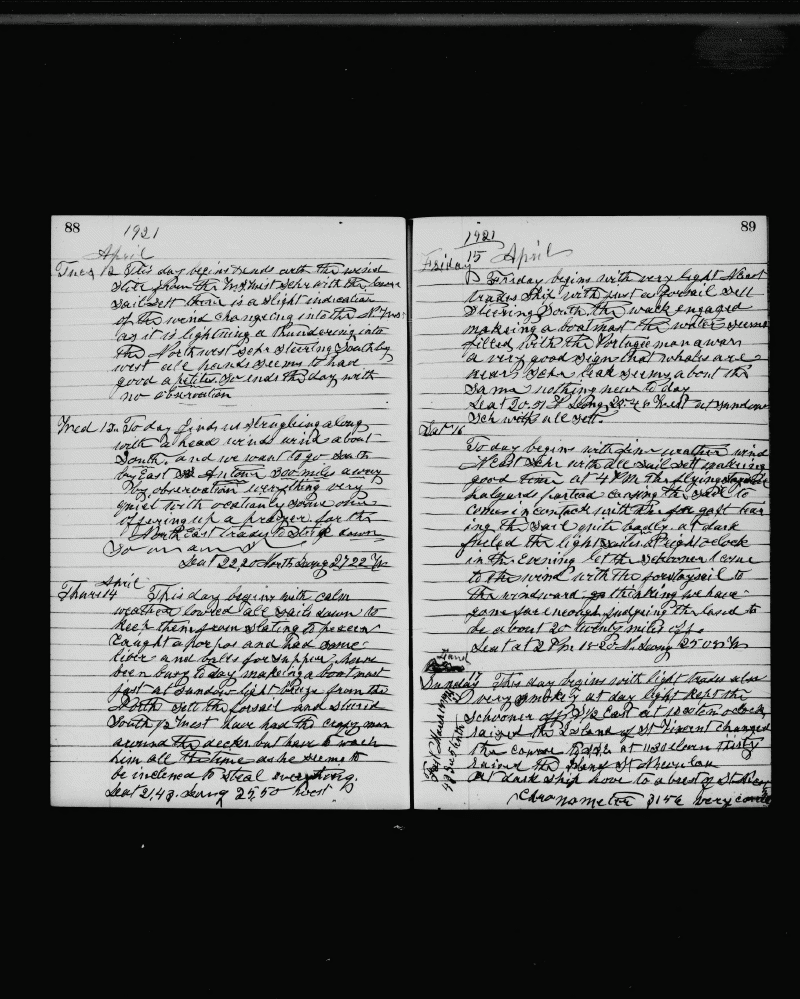 88
1921
April
Tues 12 This day begins & ends with the wind
from the West Schr with the lower
sail sett there is a slight indication
of the wind changeing into the N West
as it is lightning & thundering into
the North west Schr steering South by
west all hands seems to have
good apetites. So ends the day with
no observation
Wed 13. To day finds us strugleing along
with a head wind wind about
South. and we want to go South
by East 300 miles away
By observation everything very
quiet with ocationly some one
offering up a prayer for the
North East trades to
Lat 22,20 North Long 27 22 W
April
Thurs 14 This day begins with calm
weather lowred all sails down to
keep them from slating to peaces
Caught a porpos and had some
liver and bales for supper have
been busy to day makeing a boat mast
just at sundown light breze from the
North sett the forsail and stered
South 1/2 West have had the crazy man
around the decks but have to wach
him all the time as he seems to
be inclined to steal everything.
Lat 21,43. Long 25,50 West
89
1921
Friday 15 April
Friday begins with very light N East
trades Ship with just a forsail sett
Steering South the wach engaged
makeing a boat mast the water seems
filled with the Portagee man a warr
a very good sign that whales are
near. Schr leak seems about the
same nothing new to day
Lat 20. Long 25 West at sundown
Sch with all sett.
Sat 16
To day begins with fine weather wind
N East Schr with all sail sett makeing
good time at 4 P.M. the flying
halyard parted causing the sail to
come in contack with the fore gaft tear
ing the sail quite badly. at dark
furled the light sails at eight oclock
in the Evening let the schooner come
to the wind with the forestaysail to
the windward. thinking we have
gone far enough judging the land to
be about 20 twenty miles off.
Lat at 2 Pm 18 20 N. Long 25 05 W
Land
Sunday 17 This day begins with light trades also
very smokey at day light kept the
schooner off S 1/2 East at 10 ten oclock
raised the Island of St Vincent changed
the course to at 11.30 eleven thirty
raised the Island St
At dark ship hove to a brest of St
Chronometer 31 5 6 very